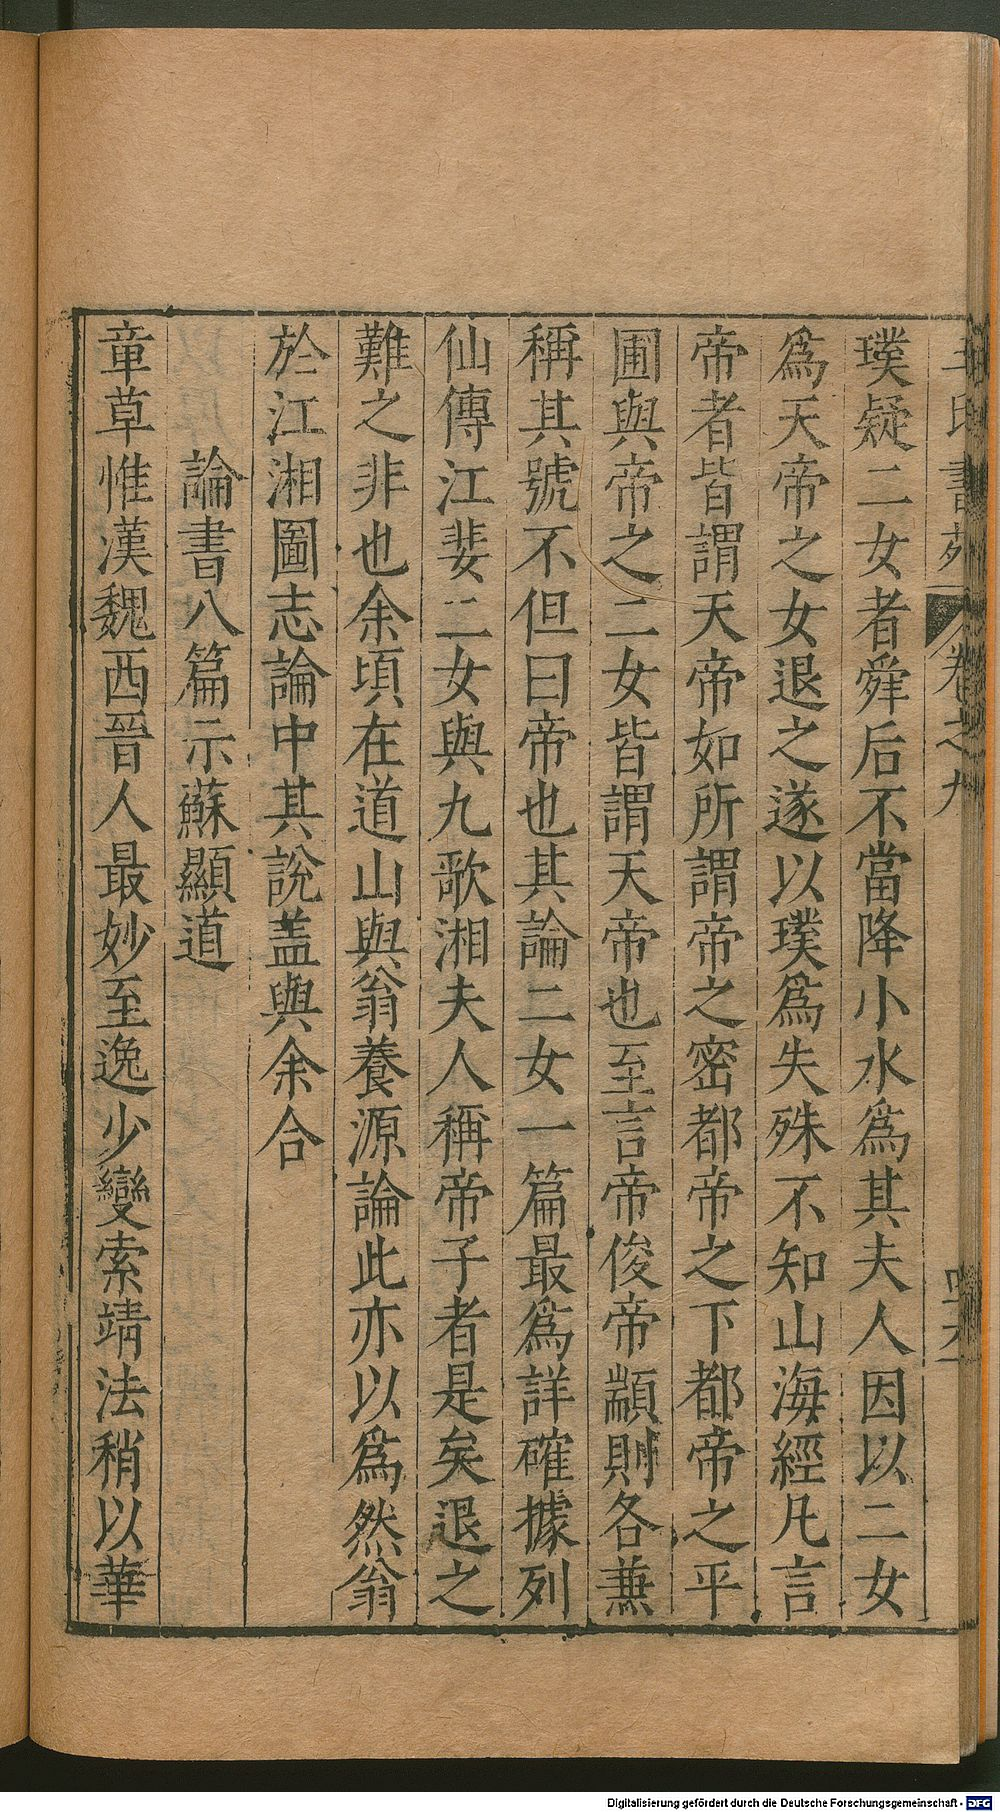 王氏書苑 卷之九
璞疑二女者舜后不當降小水爲其夫人因以二女
爲天帝之女退之遂以璞爲失殊不知山海經凡言
帝者皆謂天帝如所謂帝之密都帝之下都帝之平
圃與帝之二女皆謂天帝也至言帝俊帝顓則各兼
稱其號不但曰帝也其論二女一篇最爲詳確據列
仙傳江婓二女與九歌湘夫人稱帝子者是矣退之
難之非也余頃在道山與翁養源論此亦以爲然翁
於江湘圖志論中其說盖與余合
論書八篇示蘇顯道
章草惟漢魏西晉人最妙至逸少變索靖法稍以華
Digitalisierung gefördert durch die Deutsche Forschungsgemeinschaft - DFG